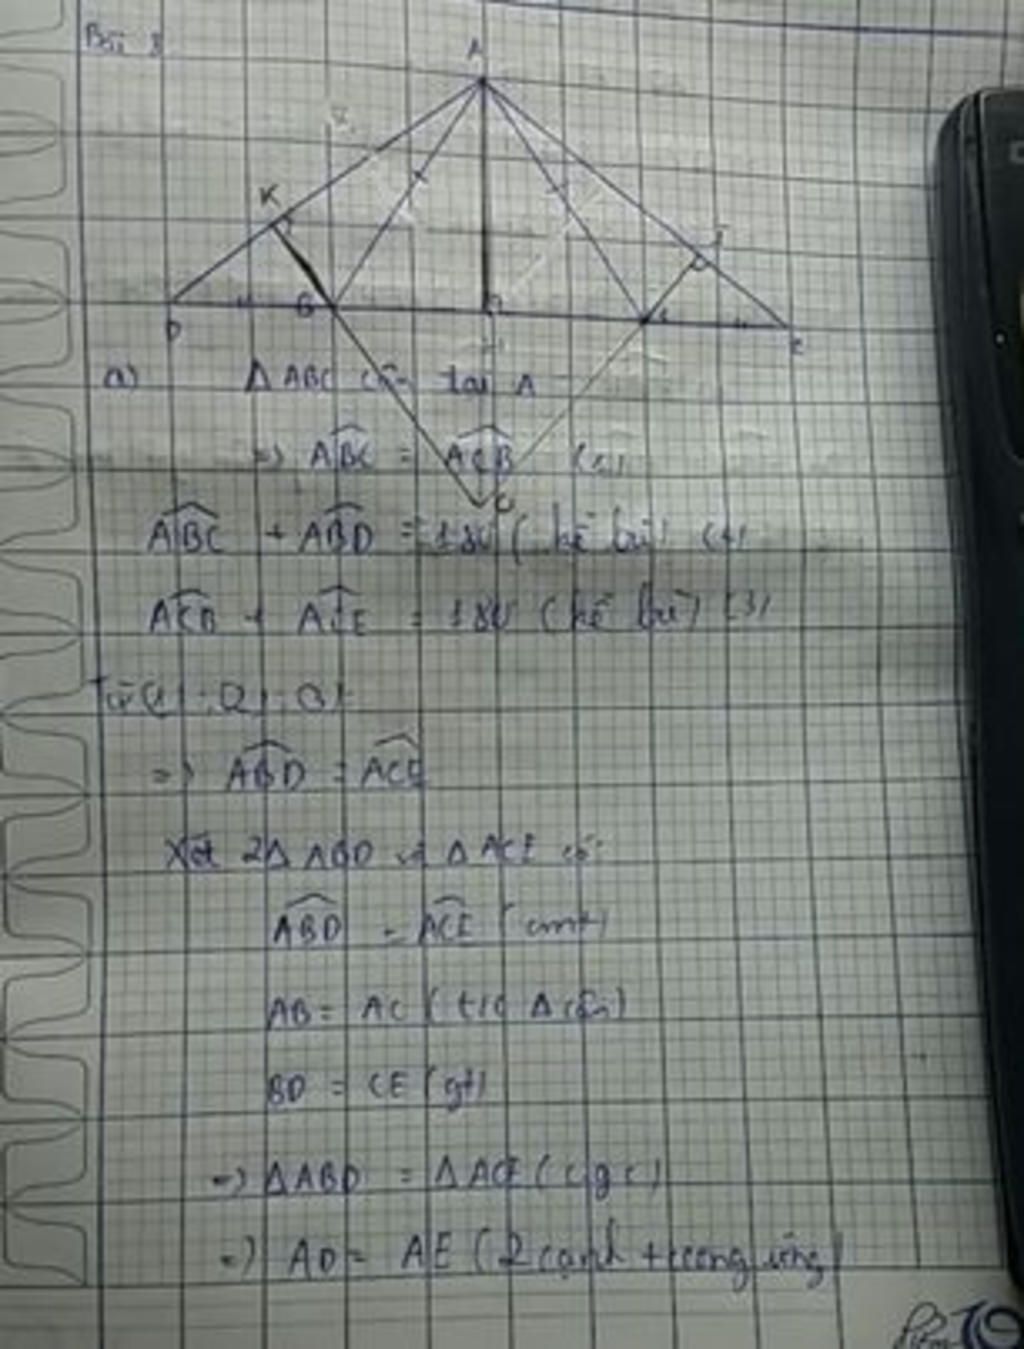 Bài 3
A
K
I
D
B
H
C
E
O
a) Δ ABC cân tại A
=) ABC = ACB (1)
ABC + ABD = 180 ( kề bù) (2)
ACB + ACE = 180 (kề bù) (3)
Từ (1), (2), (3)
=) ABD = ACE
Xét 2Δ ABD và Δ ACE có:
ABD = ACE (cmt)
AB = AC ( t/c Δ cân)
BD = CE (gt)
=) Δ ABD = Δ ACE (c g c)
=) AD = AE (2 cạnh tương ứng)